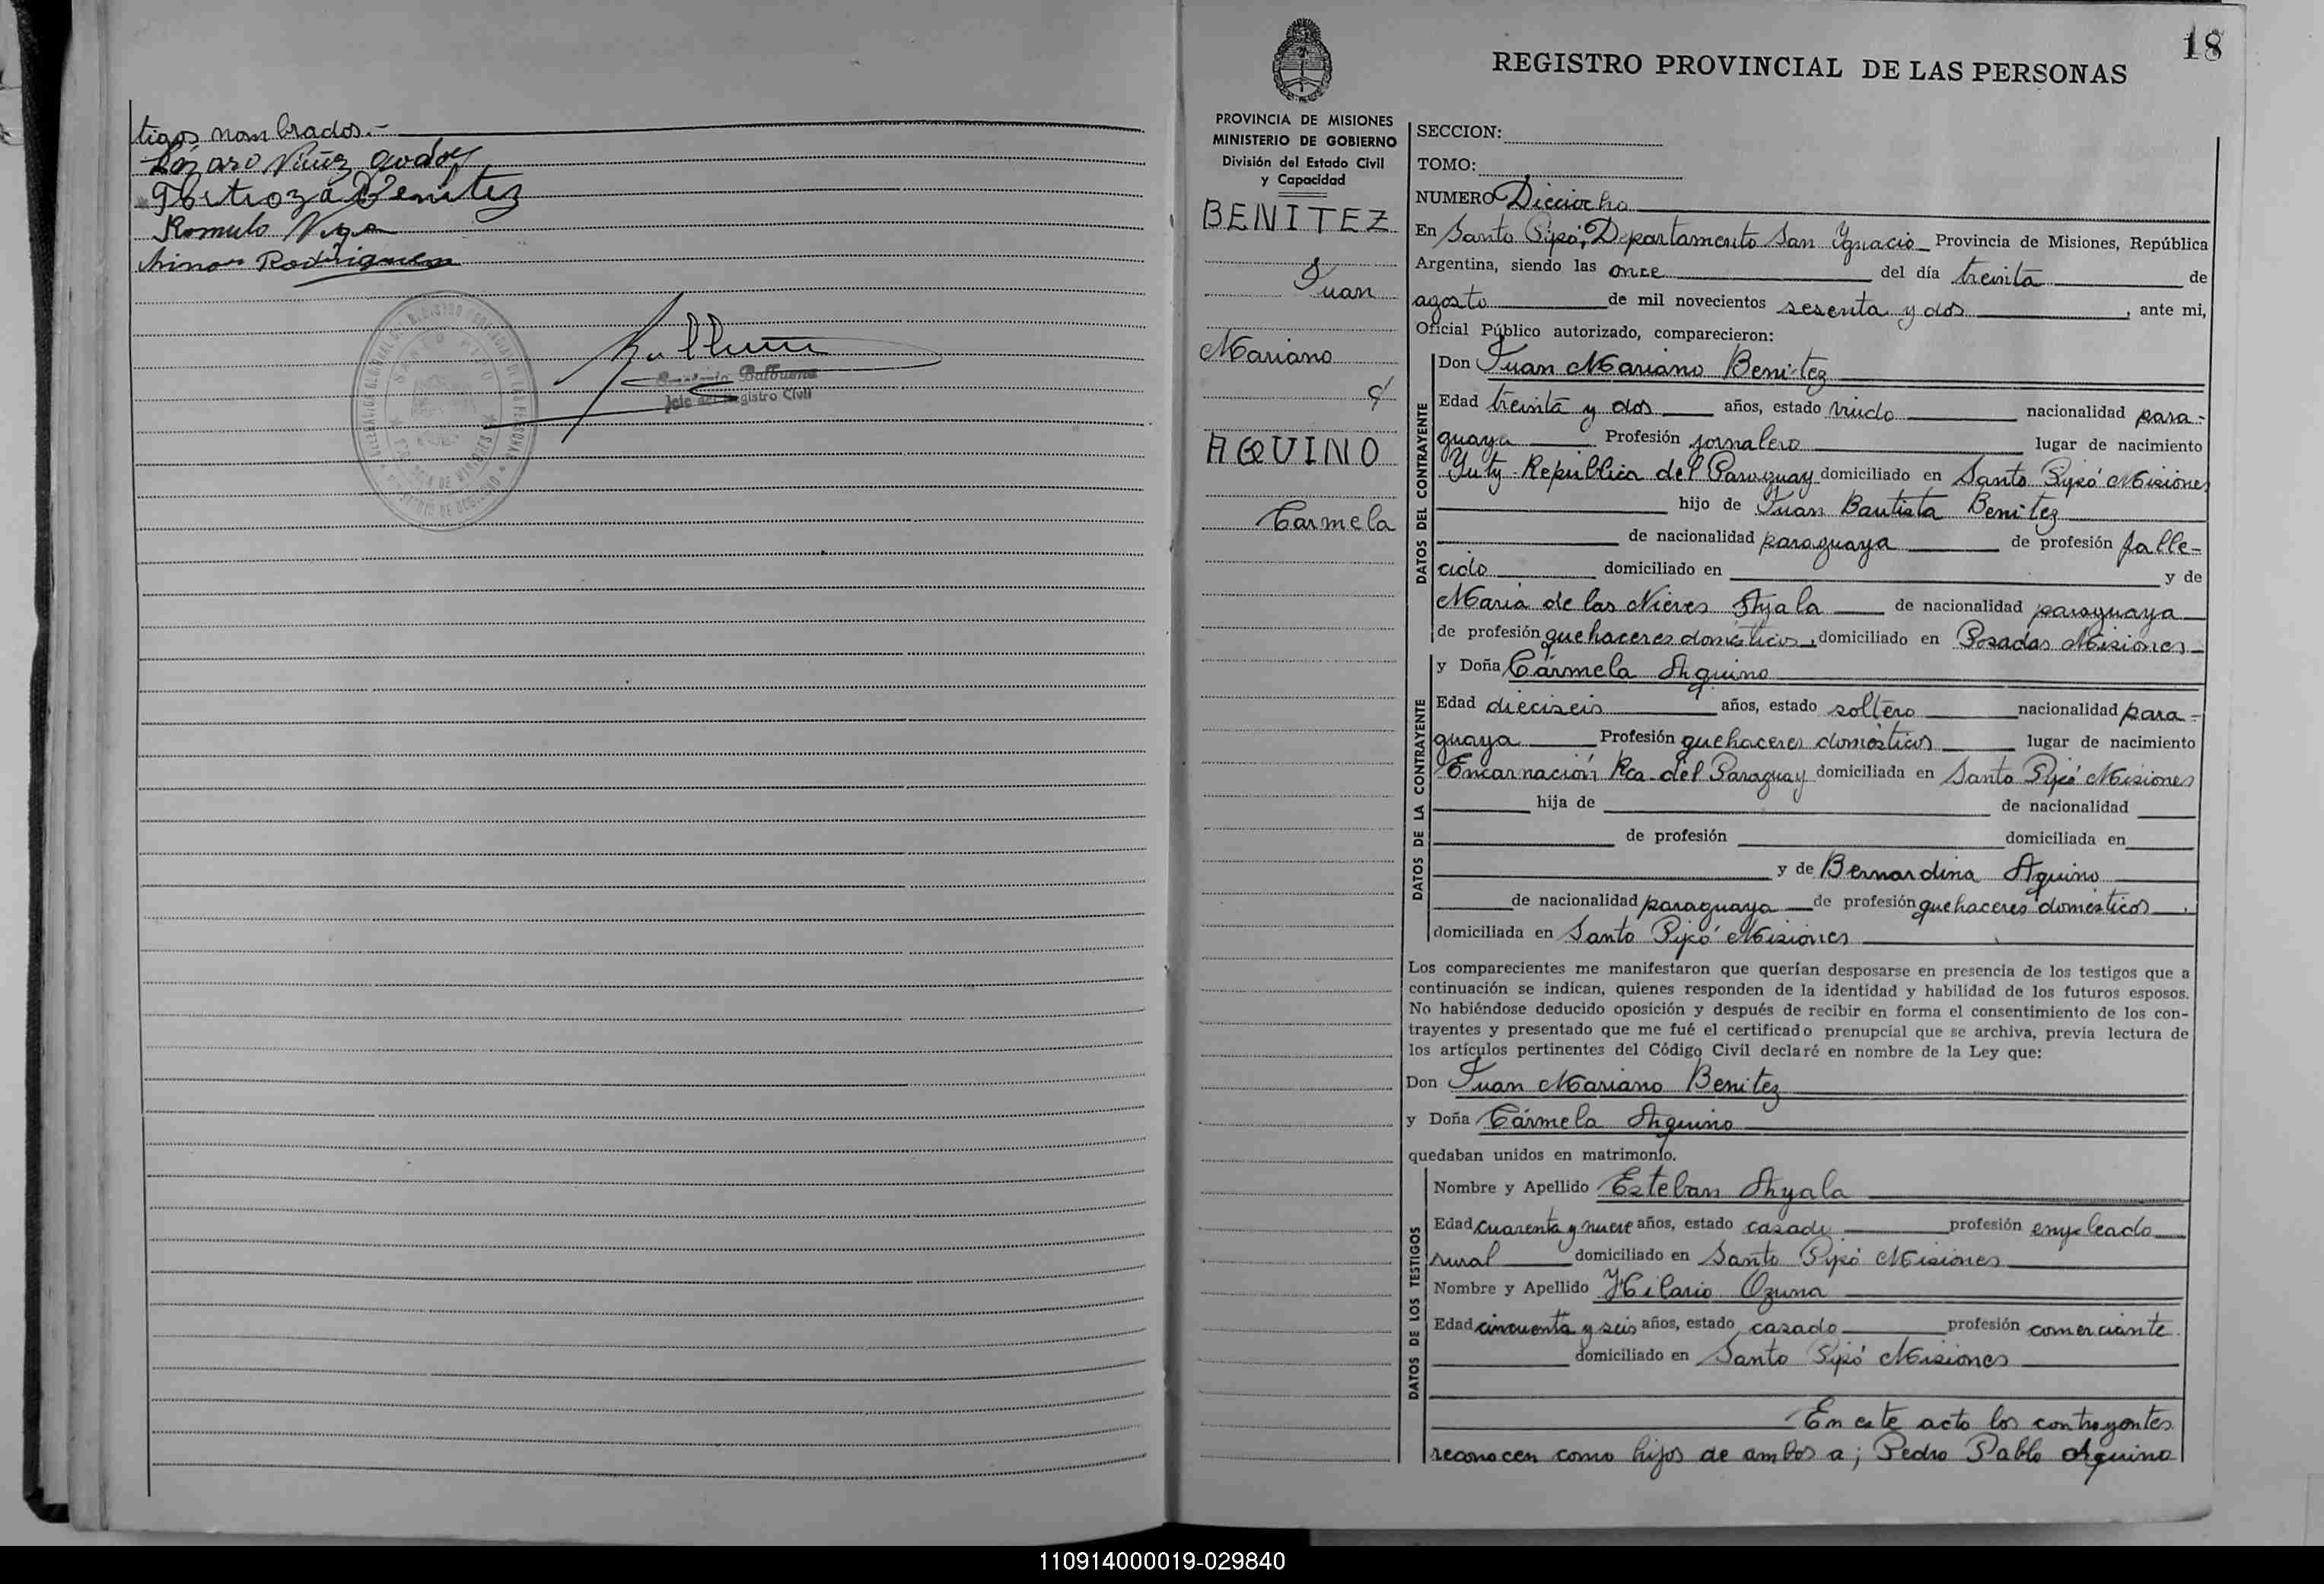 tigos nombrados.-
Lázaro Núñez Godoy
Benitez
Romulo Vega
Rodriguez
Balbuena
Jefe del Registro Civil
SANTO PIPO
18
REGISTRO PROVINCIAL DE LAS PERSONAS
PROVINCIA DE MISIONES
MINISTERIO DE GOBIERNO
División del Estado Civil
y Capacidad
BENITEZ
Juan
Mariano
AQUINO
Carmela
SECCION:
TOMO:
NUMERO Dieciocho
En Santo Pipó, Departamento San Ygnacio Provincia de Misiones, República
Argentina, siendo las once del día treinta de
agosto de mil novecientos sesenta y dos, ante mi,
Oficial Público autorizado, comparecieron:
DATOS DEL CONTRAYENTE
Don Juan Mariano Benitez
Edad treinta y dos años, estado viudo nacionalidad para-
guaya Profesión jornalero lugar de nacimiento
Yuty República del Paraguay domiciliado en Santo Pipó Misiones
hijo de Juan Bautista Benitez
de nacionalidad paraguaya de profesión falle-
cido domiciliado en y de
Maria de las Nieves Ayala de nacionalidad paraguaya
de profesión quehaceres domésticos, domiciliado en Posadas Misiones
DATOS DE LA CONTRAYENTE
y Doña Cármela Aquino
Edad dieciseis años, estado soltero nacionalidad para-
guaya Profesión quehaceres domésticos lugar de nacimiento
Encarnación Rca. del Paraguay domiciliada en Santo Pipó Misiones
hija de de nacionalidad
de profesión domiciliada en
y de Bernardina Aquino
de nacionalidad paraguaya de profesión quehaceres domésticos,
domiciliada en Santo Pipó Misiones
Los comparecientes me manifestaron que querían desposarse en presencia de los testigos que a
continuación se indican, quienes responden de la identidad y habilidad de los futuros esposos.
No habiéndose deducido oposición y después de recibir en forma el consentimiento de los con-
trayentes y presentado que me fué el certificado prenupcial que se archiva, previa lectura de
los artículos pertinentes del Código Civil declaré en nombre de la Ley que:
Don Juan Mariano Benitez
y Doña Cármela Aquino
quedaban unidos en matrimonio.
DATOS DE LOS TESTIGOS
Nombre y Apellido Esteban Ayala
Edad cuarenta y nueve años, estado casado profesión empleado
rural domiciliado en Santo Pipó Misiones
Nombre y Apellido Hilario Ozuna
Edad cincuenta y seis años, estado casado profesión comerciante
domiciliado en Santo Pipó Misiones
En este acto los contrayentes
reconocen como hijos de ambos a; Pedro Pablo Aquino
110914000019-029840